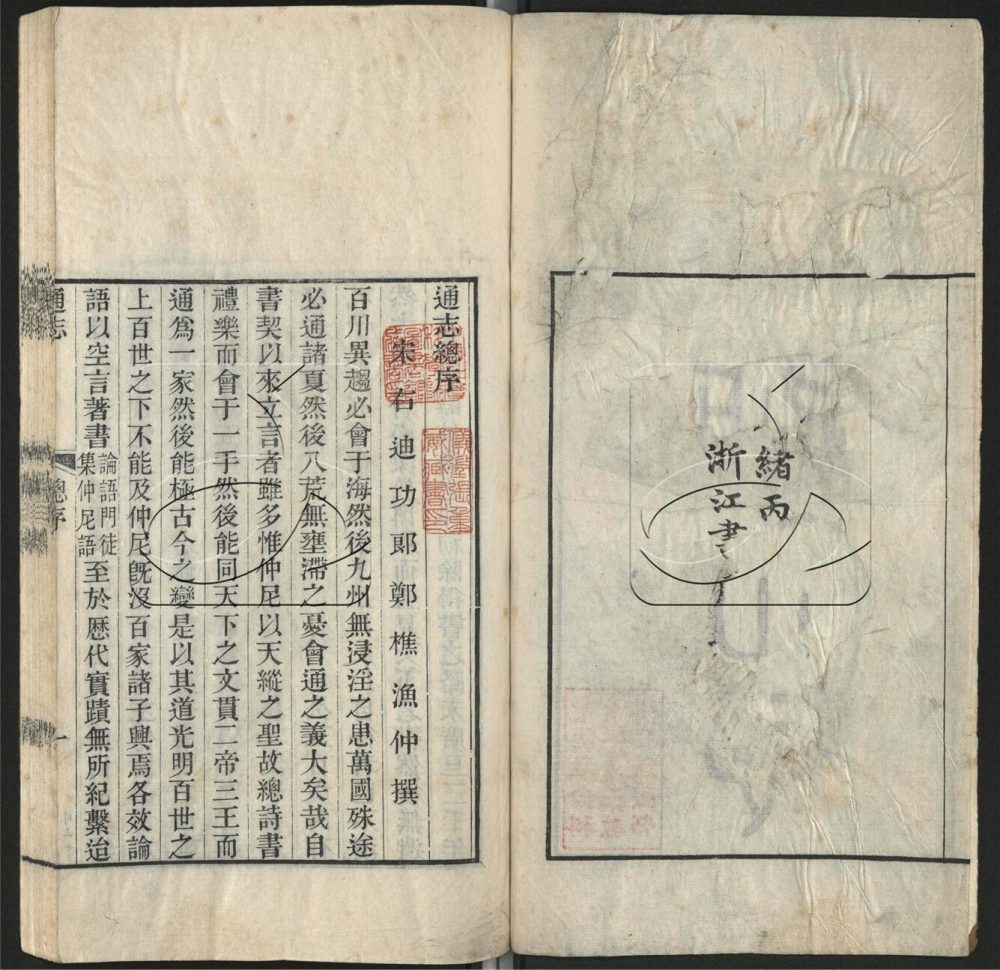 緒丙
浙江書
通志總序
宋右迪功郎鄭樵漁仲撰
百川異趨必會于海然後九州無浸淫之患萬國殊途
必通諸夏然後八荒無壅滯之憂會通之義大矣哉自
書契以來立言者雖多惟仲尼以天縱之聖故總詩書
禮樂而會于一手然後能同天下之文貫二帝三王而
通爲一家然後能極古今之變是以其道光明百世之
上百世之下不能及仲尼旣沒百家諸子興焉各效論
語以空言著書論語門徒集仲尼語至於歷代實蹟無所紀繫迨
通志
總序
一